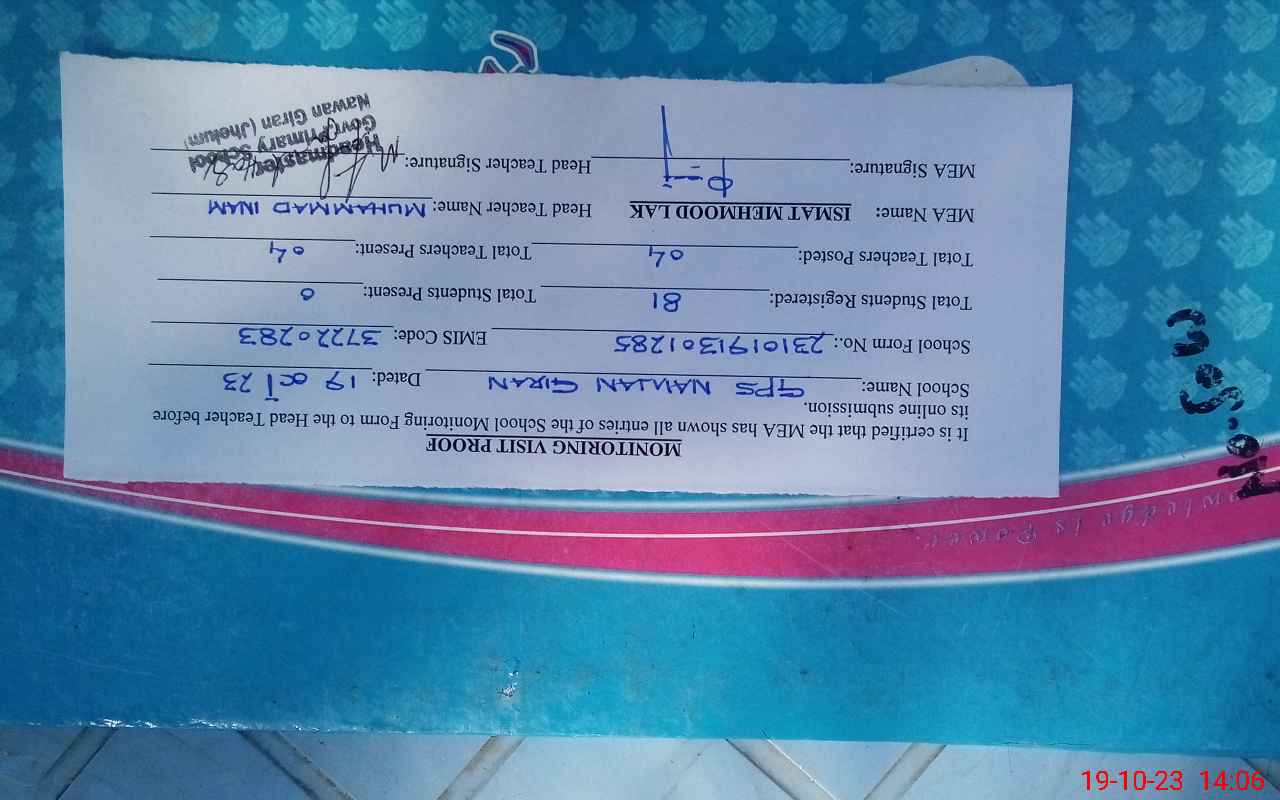 MONITORING VISIT PROOF
It is certified that the MEA has shown all entries of the School Monitoring Form to the Head Teacher before
its online submission.
School Name: GPS NAWAN GIRAN Dated: 19 OCT 23
School Form No.: 231019131301285 EMIS Code: 37220283
Total Students Registered: 81 Total Students Present: 0
Total Teachers Posted: 04 Total Teachers Present: 04
MEA Name: ISMAT MEHMOOD LAK Head Teacher Name: MUHAMMAD INAM
MEA Signature: Head Teacher Signature:
Headmaster
Govt Primary School
Nawan Giran (Jhelum)
Knowledge is Power.
19-10-23 14:06